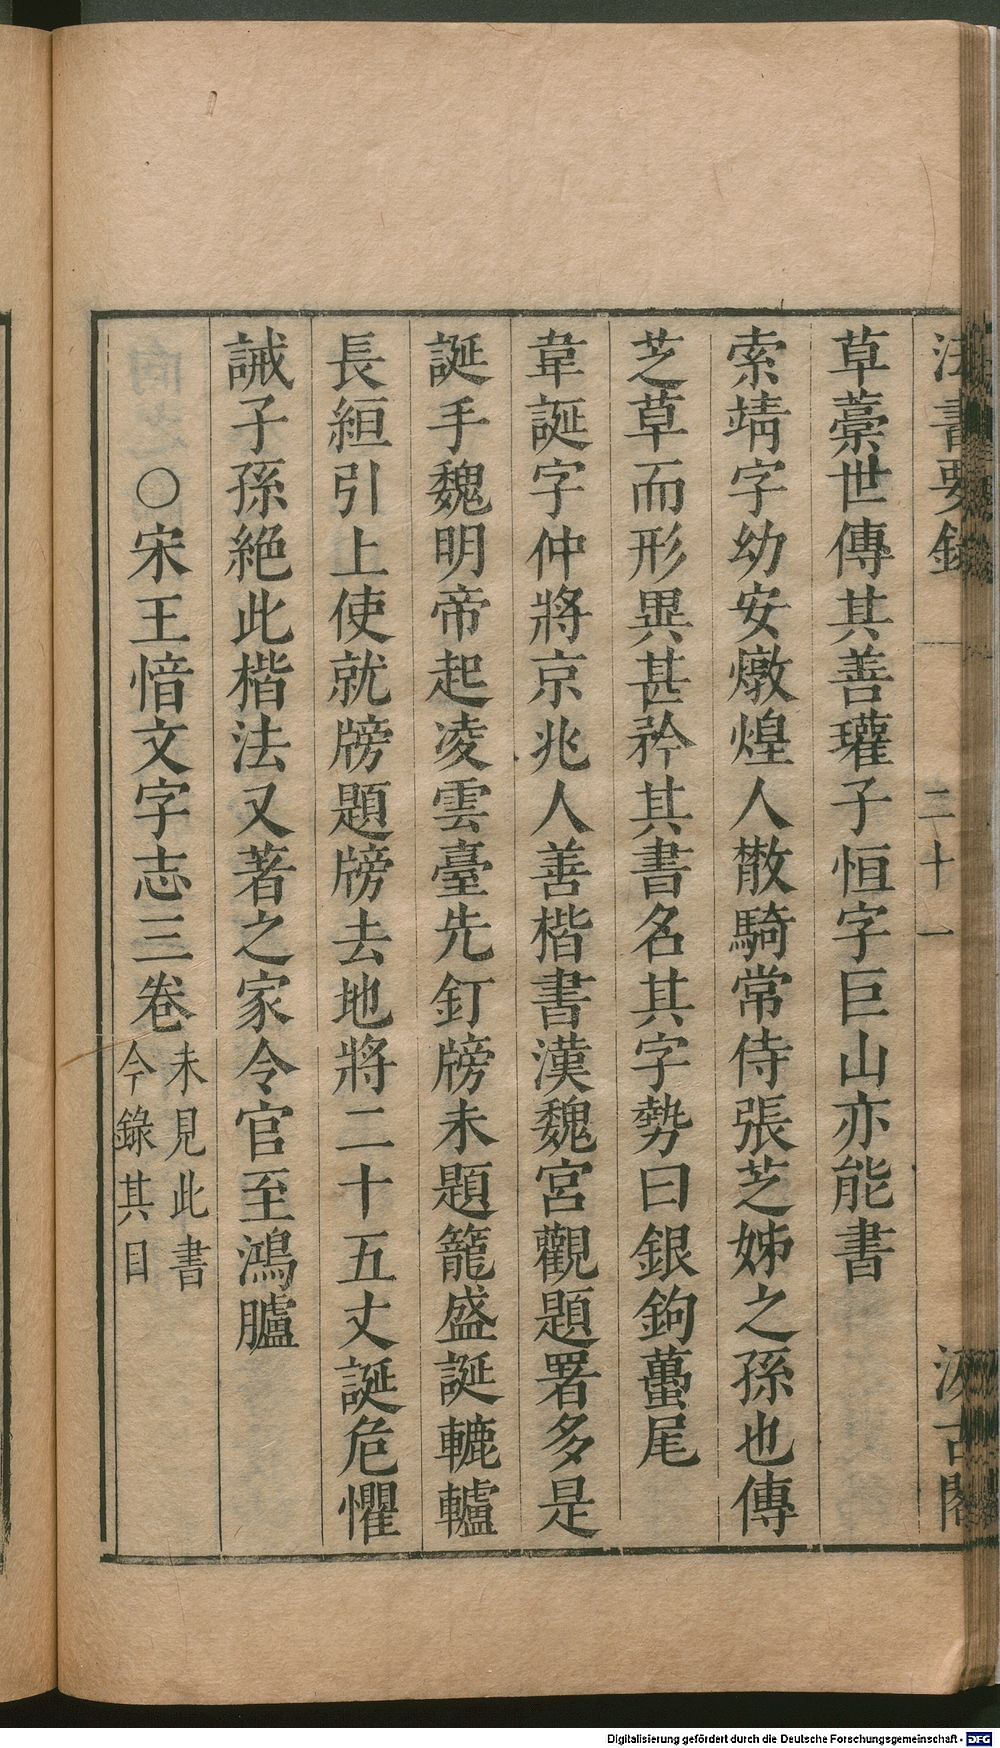 法書要錄 二十一 汲古閣
草藁世傳其善瓘子恒字巨山亦能書
索靖字幼安燉煌人散騎常侍張芝姊之孫也傳
芝草而形異甚矜其書名其字勢曰銀鉤蠆尾
韋誕字仲將京兆人善楷書漢魏宮觀題署多是
誕手魏明帝起凌雲臺先釘牓未題籠盛誕轆轤
長絙引上使就牓題牓去地將二十五丈誕危懼
誡子孫絕此楷法又著之家令官至鴻臚
○宋王愔文字志三卷
未見此書
今錄其目
Digitalisierung gefördert durch die Deutsche Forschungsgemeinschaft - DFG